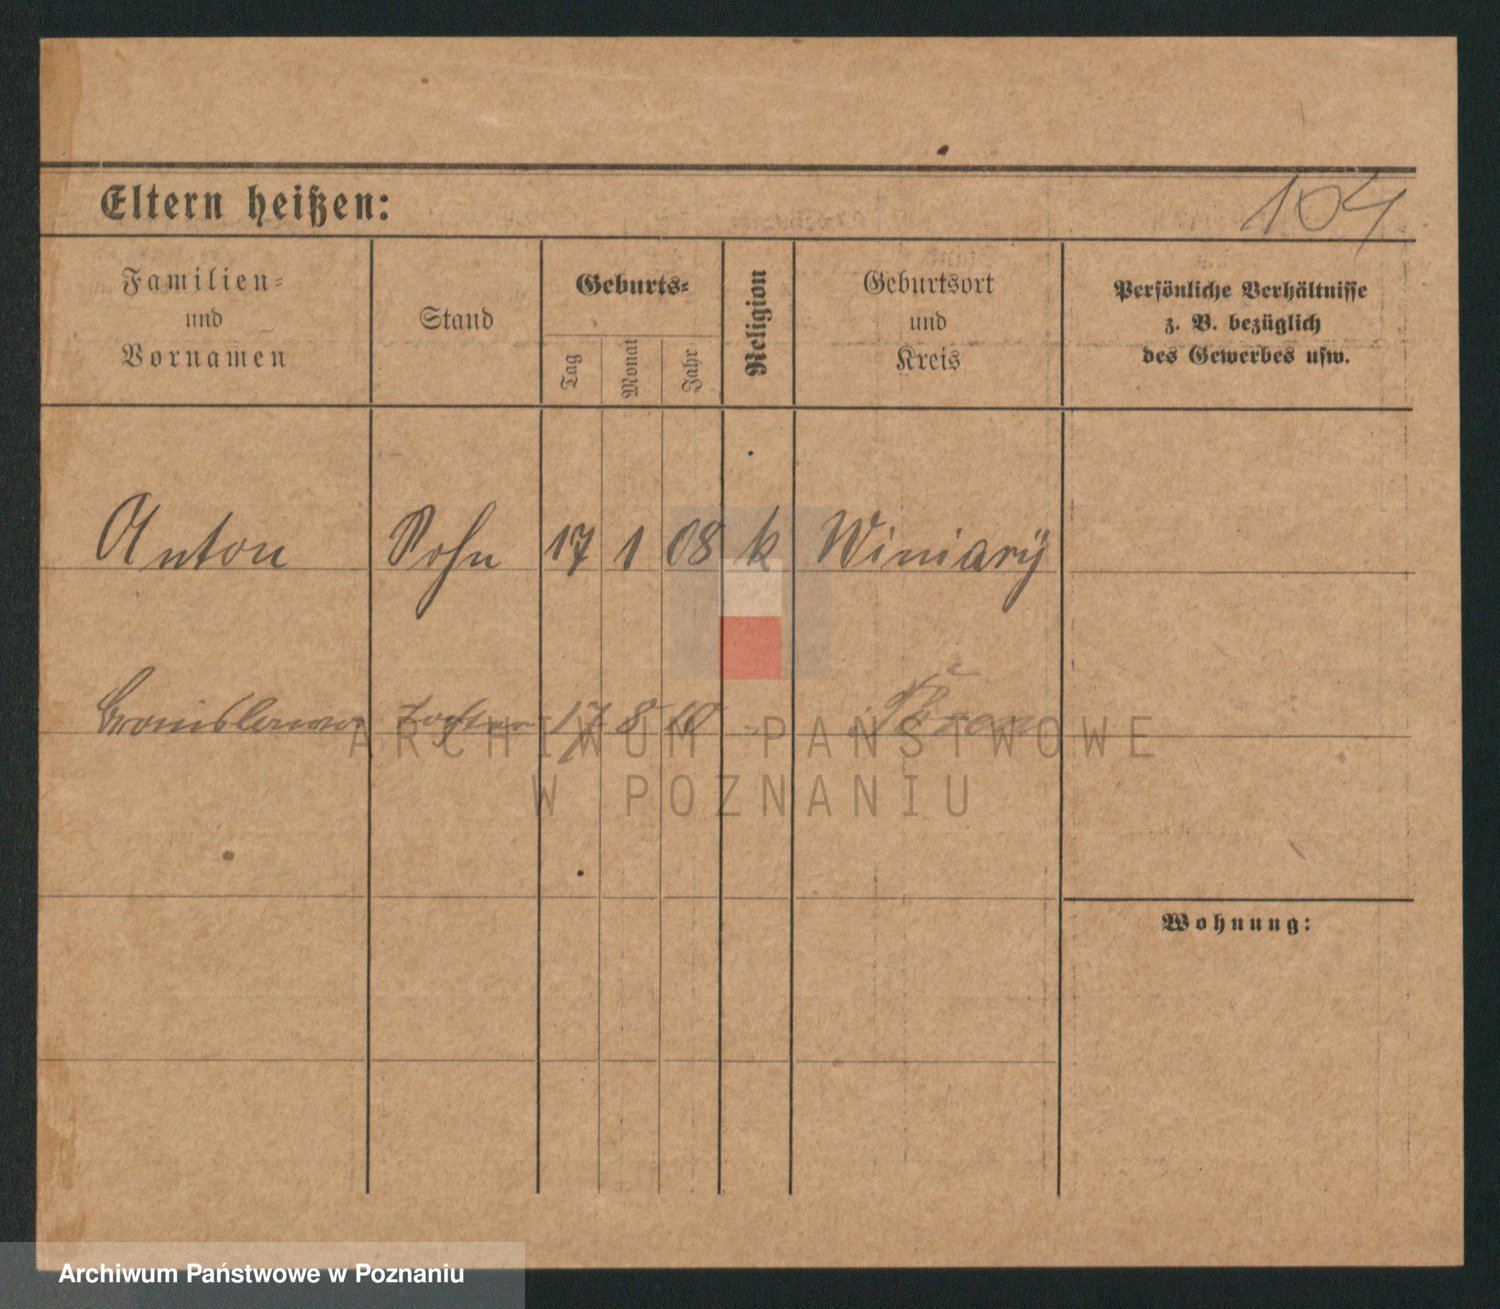 104
Eltern heißen:
Familien-
und
Vornamen
Stand
Geburts-
Tag
Monat
Jahr
Religion
Geburtsort
und
Kreis
Persönliche Verhältnisse
z. B. bezüglich
des Gewerbes usw.
Anton Sohn 17 1 08 k Winiary
Bronislawa Tochter 17 8 10 Posen
ARCHIWUM PAŃSTWOWE
W POZNANIU
Wohnung:
Archiwum Państwowe w Poznaniu